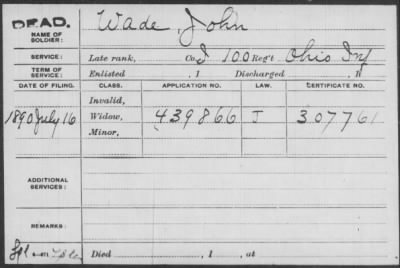 DEAD. Wade, John
NAME OF
SOLDIER:
SERVICE: Late rank, Co. I 100 Reg't Ohio Inf
TERM OF
SERVICE: Enlisted , 1 Discharged , 1
DATE OF FILING. CLASS. APPLICATION NO. LAW. CERTIFICATE NO.
Invalid,
1890 July 16 Widow, 439866 J 307761
Minor,
ADDITIONAL
SERVICES:
REMARKS:
Died , 1 , at